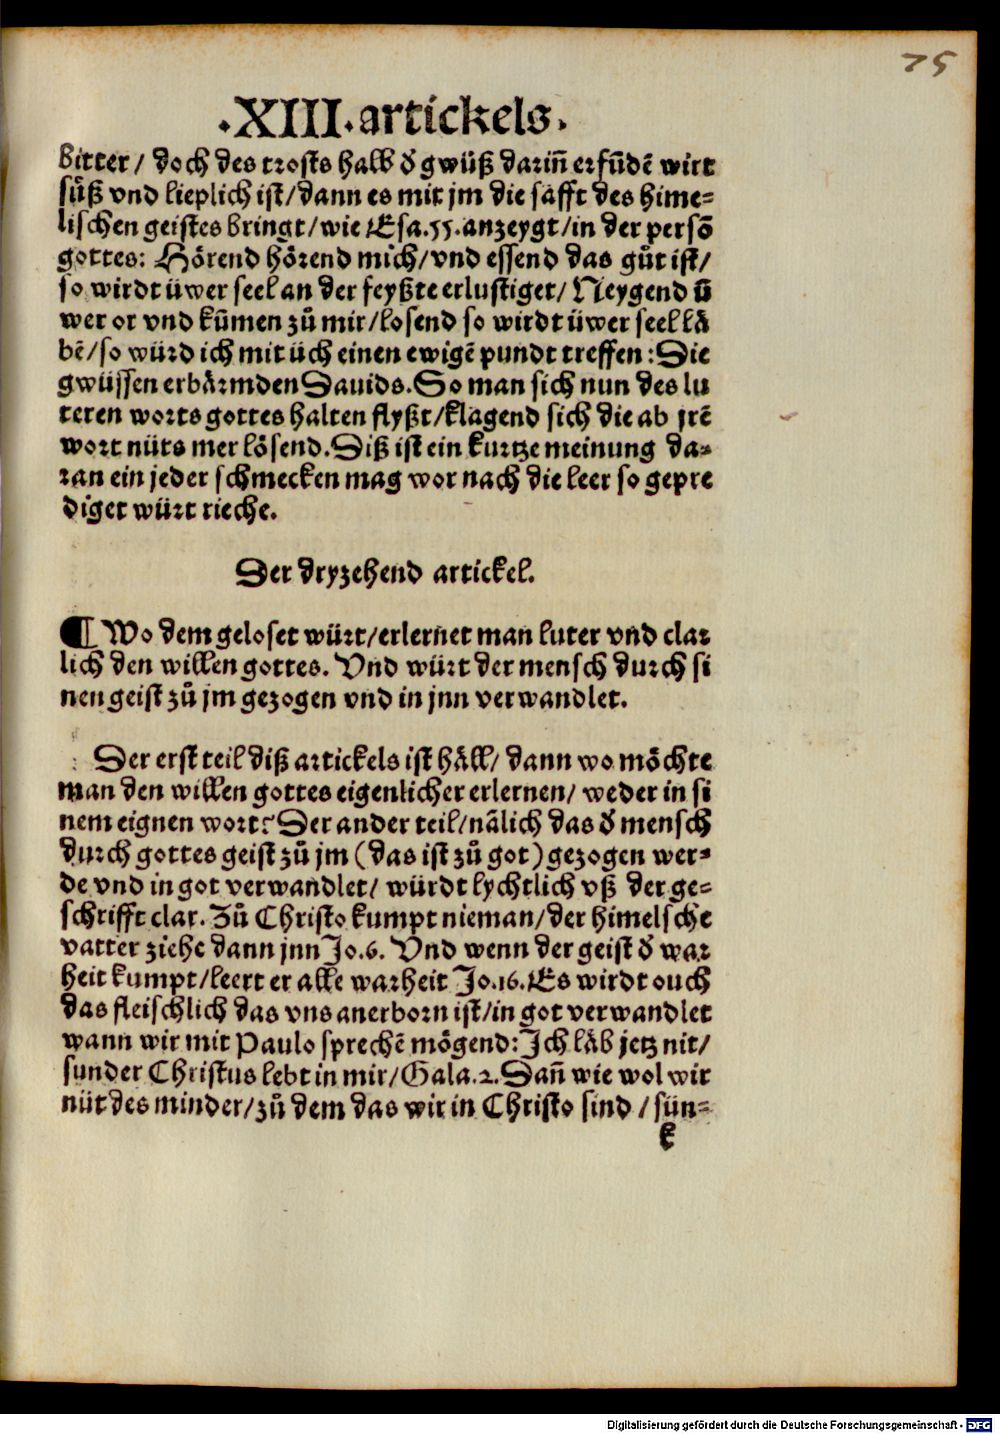 75
.XIII.artickels.
bitter/ doch des trosts halb d̕ gwüß dariñ erfūdē wirt
sůß vnd lieplich ist/dann es mit jm die säfft des hime⸗
lischen geistes bringt/wie Esa.55.anzeygt/in der persō
gottes: Hörend hörend mich/vnd essend das gůt ist/
so wirdt üwer seel an der feyßte erlustiget/ Neygend ü̃
wer or vnd kūmen zů mir/losend so wirdt üwer seel lä
bē/so würd ich mit üch einen ewigē pundt treffen:Die
gwüssen erbärmden Dauids.So man sich nun des lu
teren worts gottes halten flyßt/klagend sich die ab jrē
wort nüts mer lösend.Diß ist ein kurtze meinung da⸗
ran ein jeder schmecken mag wor nach die leer so gepre
diget würt rieche.
Der dryzehend artickel.
¶ Wo dem geloset würt/erlernet man luter vnd clar
lich den willen gottes. Vnd würt der mensch durch si
nen geist zů jm gezogen vnd in jnn verwandlet.
Der erst teil diß artickels ist häll/ dann wo möchte
man den willen gottes eigenlicher erlernen/ weder in si
nem eignen wort? Der ander teil/nālich das d̕ mensch
durch gottes geist zů jm (das ist zů got) gezogen wer⸗
de vnd in got verwandlet/ würdt lychtlich vß der ge⸗
schrifft clar. Zů Christo kumpt nieman/der himelsche
vatter ziehe dann jnn Jo.6. Vnd wenn der geist d̕ war
heit kumpt/leert er alle warheit Jo.16.Es wirdt ouch
das fleischlich das vns anerborn ist/in got verwandlet
wann wir mit Paulo sprechē mögend:Ich läb jetz nit/
sunder Christus lebt in mir/Gala.2.Dañ wie wol wir
nüt des minder/zů dem das wir in Christo sind /sün⸗
k
Digitalisierung gefördert durch die Deutsche Forschungsgemeinschaft - DFG